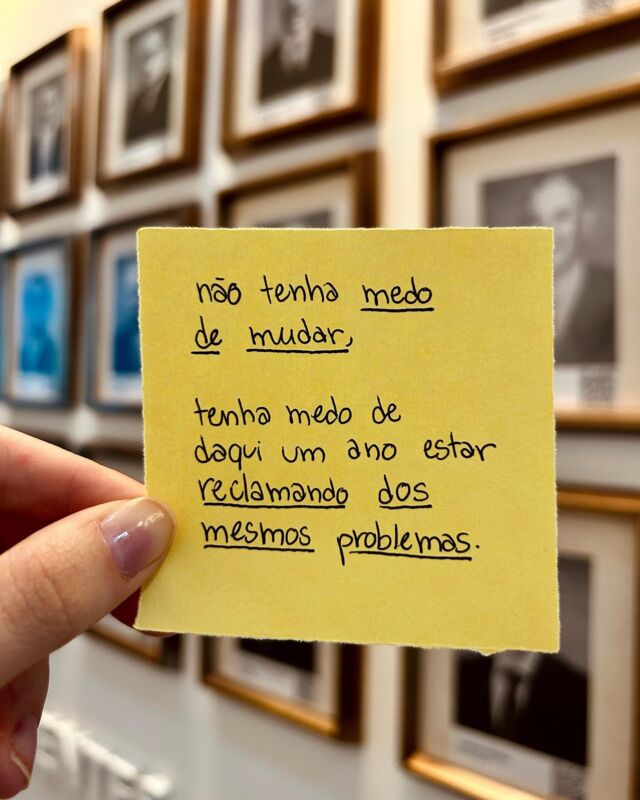 não tenha medo
de mudar,
tenha medo de
daqui um ano estar
reclamando dos
mesmos problemas.